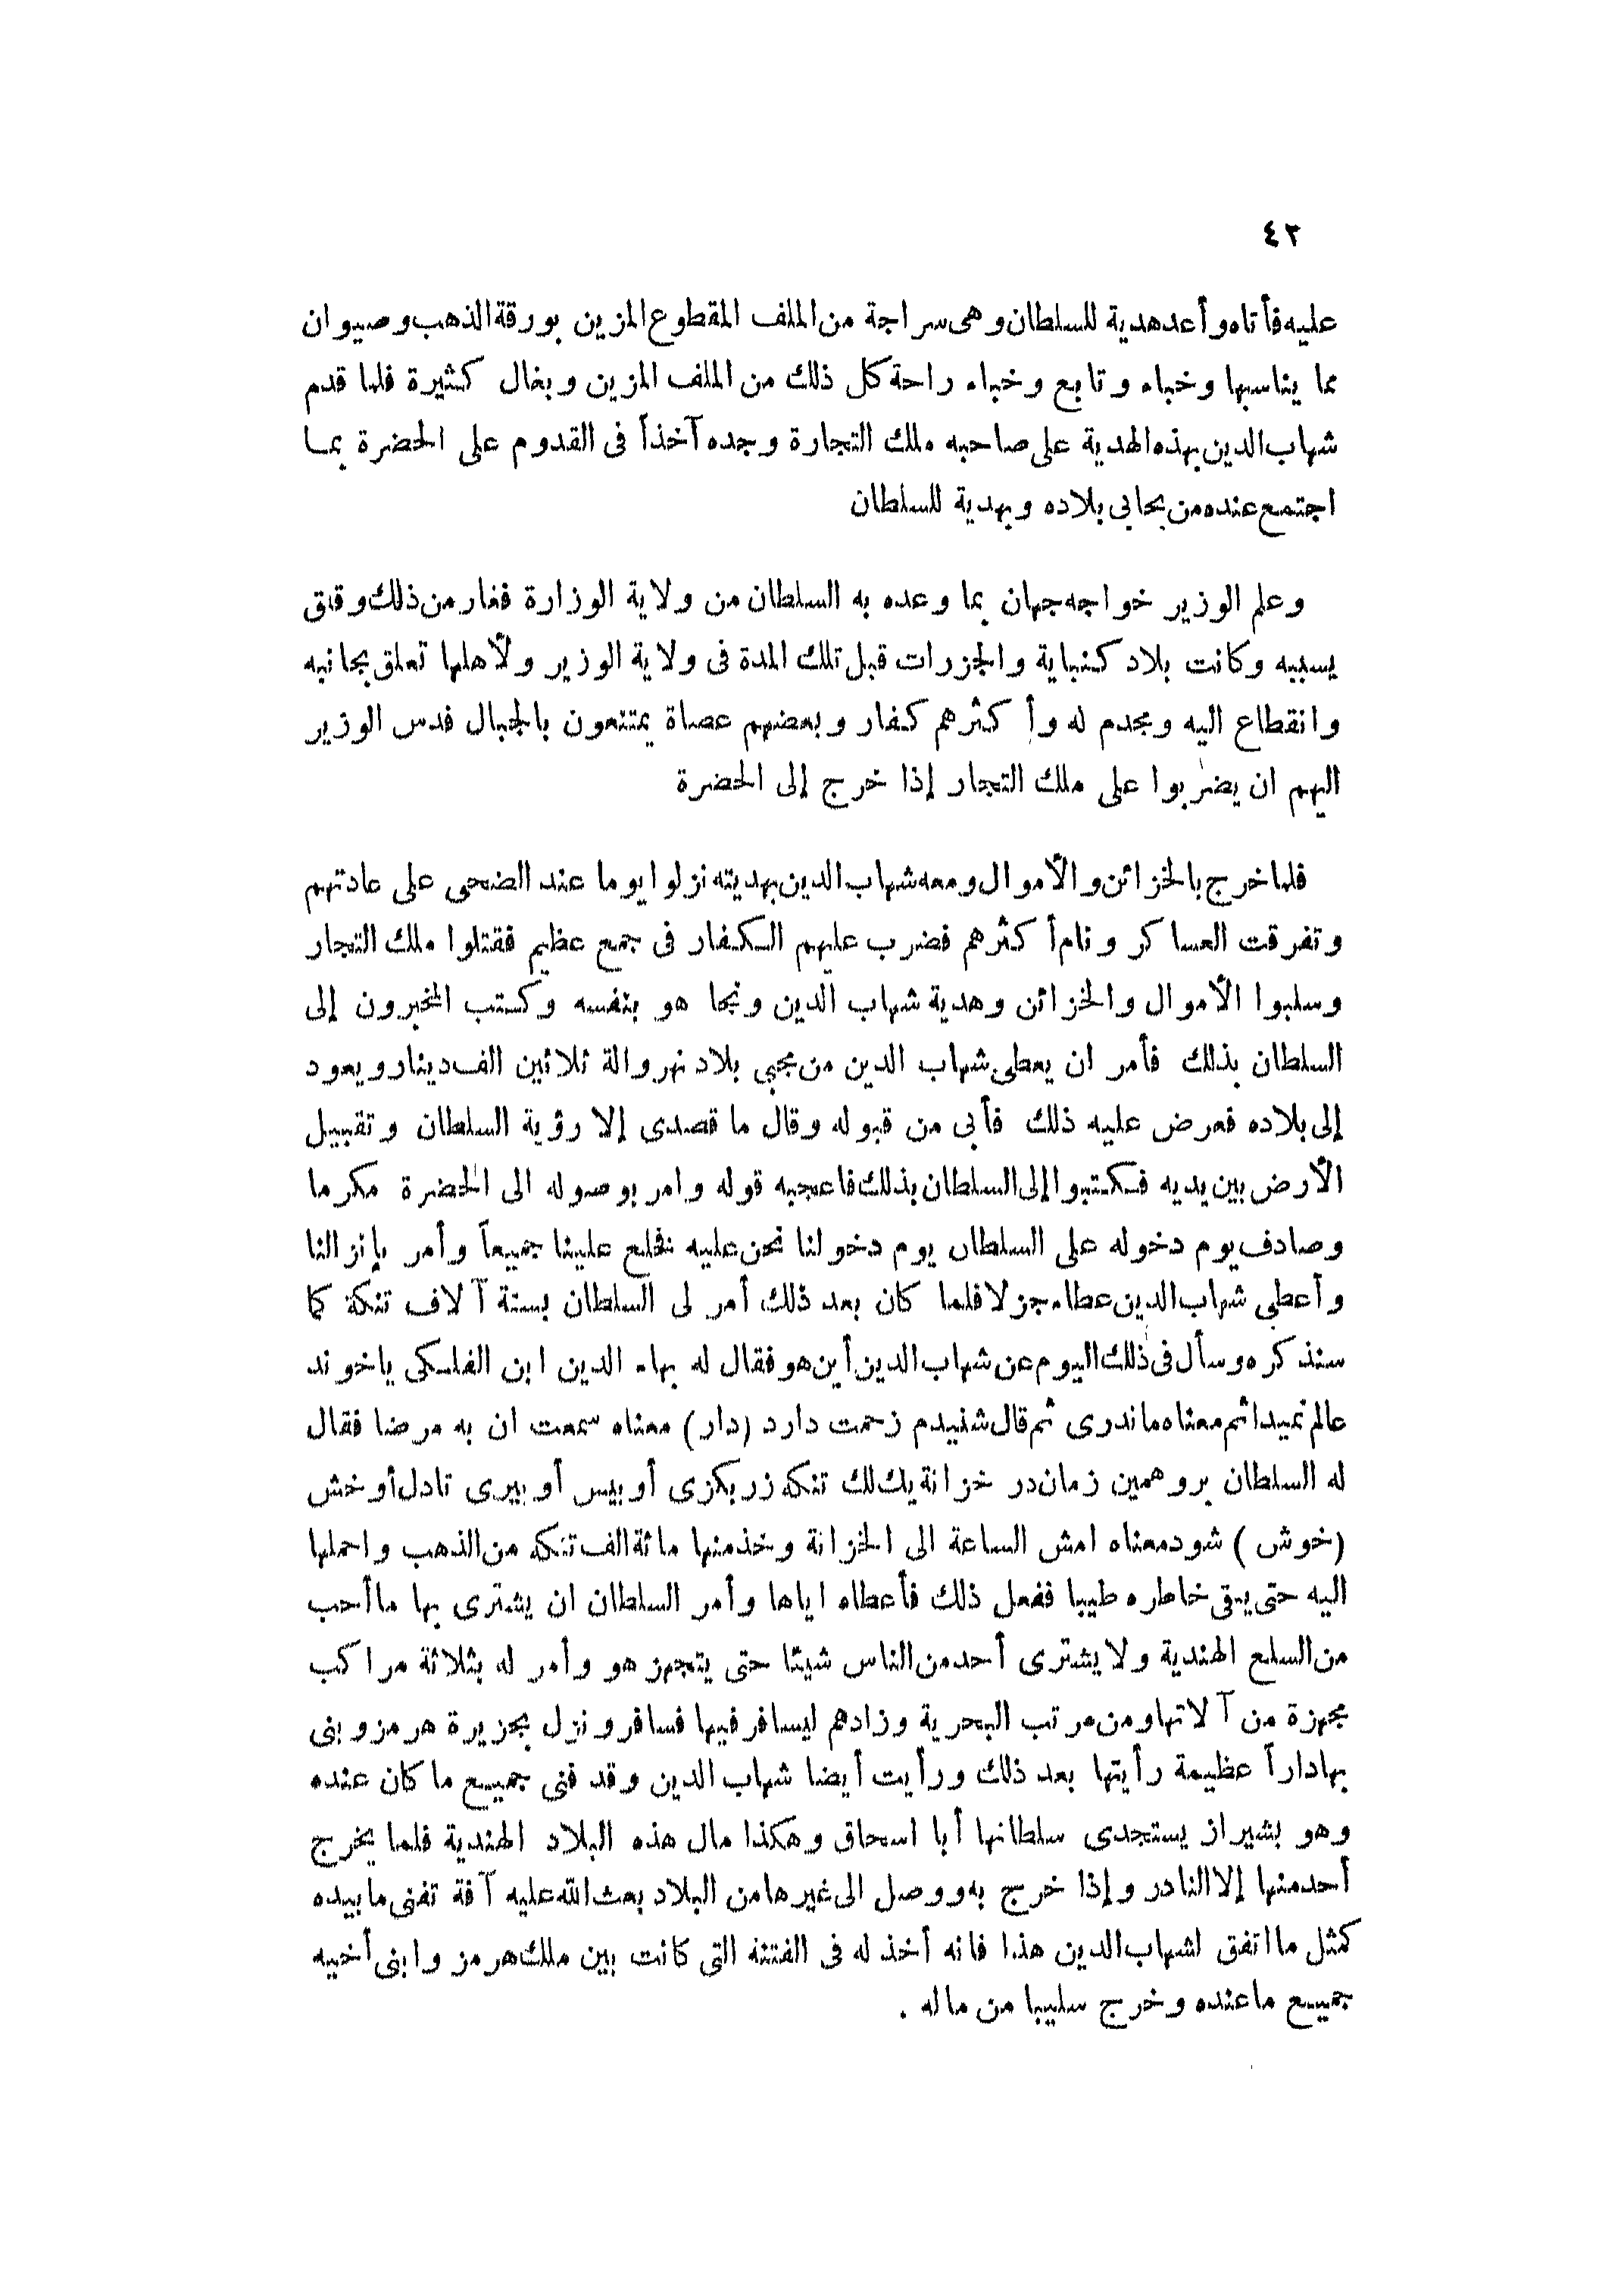 ٤٢
عليه فأتاه وأعد هدية للسلطان وهى سراجة من الملف المقطوع المزين بورقة الذهب وصيوان
مما يناسبها وخباء وتابع وخباء راحة كل ذلك من الملف المزين وبغال كثيرة فلما قدم
شهاب الدين بهذه الهدية على صاحبه ملك التجارة وجده آخذاً فى القدوم على الحضرة بما
اجتمع عنده من بحابى بلاده وبهدية للسلطان
وعلم الوزير خواجه جهان بما وعده به السلطان من ولاية الوزارة فغار من ذلك وقلق
يسببه وكانت بلاد كنباية والجزرات قبل تلك المدة فى ولاية الوزير ولأهلها تعلق بجانبه
وانقطاع اليه ومجدم له وأ كثرهم كفار وبعضهم عصاة يمتنعون بالجبال فدس الوزير
اليهم ان يضربوا على ملك التجار إذا خرج إلى الحضرة
فلما خرج بالخزائن والأموال ومعه شهاب الدين بهديته نزلوا يوما عند الضحى على عادتهم
وتفرقت العساكر ونام أكثرهم فضرب عليهم الكفار فى جمع عظيم فقتلوا ملك التجار
وسلبوا الأموال والخزائن وهدية شهاب الدين ونجا هو بنفسه وكتب المخبرون إلى
السلطان بذلك فأمر ان يعطى شهاب الدين من مجبى بلاد نهروالة ثلاثين الف دينار ويعود
إلى بلاده فعرض عليه ذلك فأبى من قبوله وقال ما قصدى إلا رؤية السلطان وتقبيل
الأرض بين يديه فكتبوا إلى السلطان بذلك فاعجبه قوله وامر بوصوله الى الحضرة مكرما
وصادف يوم دخوله على السلطان يوم دخولنا نحن عليه نخلع علينا جميعاً وأمر بإنزالنا
وأعطى شهاب الدين عطاء جزلا فلما كان بعد ذلك أمر لى السلطان بستة آلاف تنكة كما
سنذكره وسأل فى ذلك اليوم عن شهاب الدين أين هو فقال له بهاء الدين ابن الفلسكى ياخوند
عالم نميدانم معناه ماندرى ثم قال شنيدم زحمت دارد (دار) معناه سمعت ان به مرضا فقال
له السلطان برو همين زمان در خزانة يك لك تنكه زر بكزى أو بيس أو بيرى تادل أو خش
(خوش) شود معناه امش الساعة الى الخزانة وخذ منها مائة الف تنكه من الذهب واحملها
اليه حتى يبقى خاطره طيبا ففعل ذلك فأعطاه اياها وأمر السلطان ان يشترى بها ما أحب
من السلع الهندية ولا يشترى أحد من الناس شيئا حتى يتجهز هو وأمر له بثلاثة مراكب
مجهزة من آلاتها ومن مرتب البحرية وزادهم ليسافر فيها فسافر ونزل بجزيرة هرمز وبنى
بها داراً عظيمة رأيتها بعد ذلك ورأيت أيضا شهاب الدين وقد فنى جميع ما كان عنده
وهو بشيراز يستجدى سلطانها أبا اسحاق وهكذا مال هذه البلاد الهندية فلما يخرج
أحد منها إلا النادر وإذا خرج به ووصل الى غيرها من البلاد بعث الله عليه آفة تفنى ما بيده
كمثل ما اتفق لشهاب الدين هذا فانه أخذ له فى الفتنة التى كانت بين ملك هرمز وابنى أخيه
جميع ما عنده وخرج سليبا من ماله .